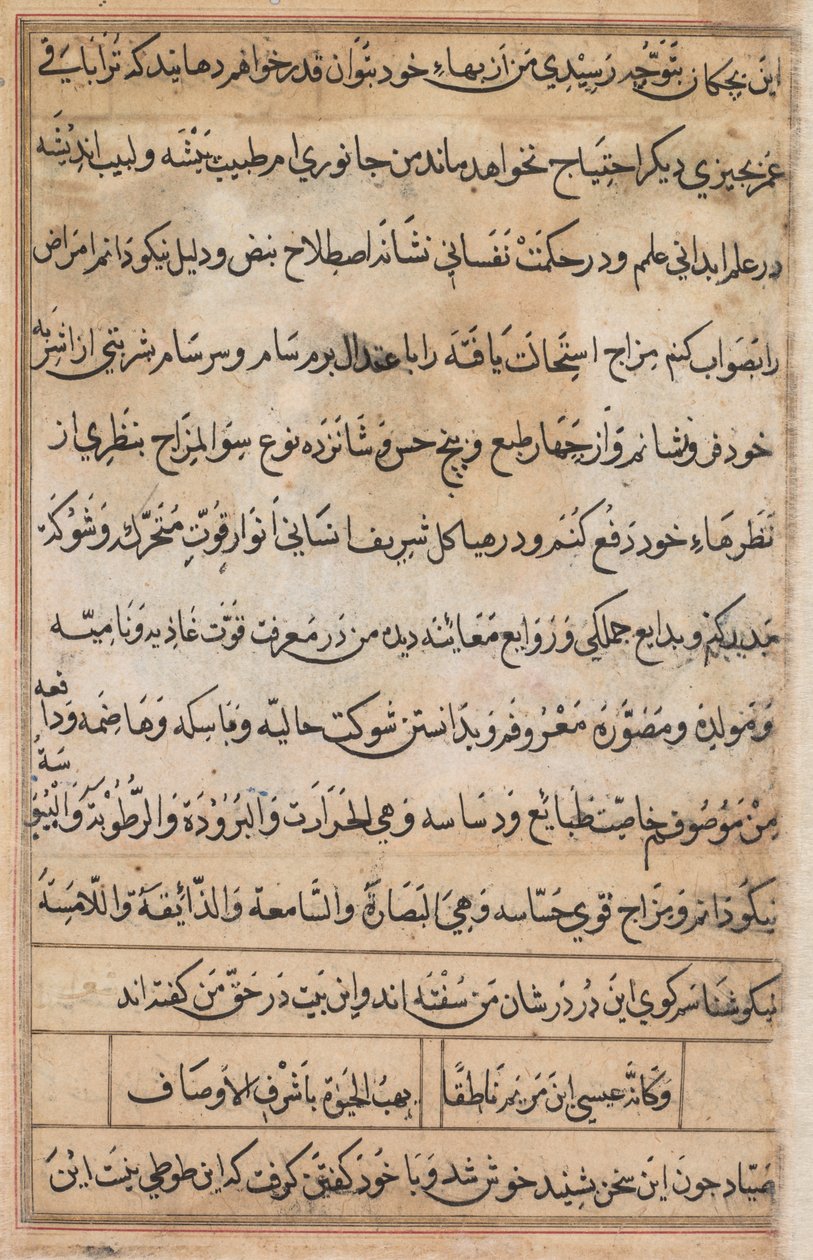 این بچکان بتوجه رسیدی من از بهاء خود بتوان قدر خواهم دهانید که ترا باقی
عمر بچیزی دیکر احتیاج نخواهد ماند من جانوری ام طبیب پیشه و لبیب اندیشه
در علم ابدانی علمم و در حکمت نفسانی نشانه اصطلاح نبض و دلیل نیکو دانم امراض
را بصواب کنم مزاج استحالت یافته را با عتدال برم سام و سرسام بشربتی از اشربه
خود فرو نشانم و از چهار طبع و پنج حس و شانزده نوع سوالمزاج بنظری از
نظرهاء خود دفع کنم و در هیاکل شریف انسانی انوار قوت متحرک و شوکت
پدید کنم و بدایع جملکی و روایع معاینه دیده من در معرفت قوت غاذیه و نامیه
و مولده و مصوره معروفم و بدانستن شوکت حالیه و ماسکه و هاضمه و دافعه
من موصوفم خاصیت طبایع و دساسه وهي الحرارت والبرودة والرطوبة والیبوسة
نیکو دانم و مزاج قوی حساسه وهي البصارة والسامعة والذائقة واللامسة
نیکو شناسم کوی این در در شان من سفته اند و این بیت در حق من کفته اند
وکانه عیسی ابن مریم ناطقا یهب الحیوة باشرف الاوصاف
صیاد چون این سخن بشنید خوش شد و با خود کفتن کرفت که این طوطی نیست این